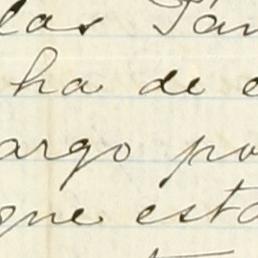 las Tam
ha de e
argo po
que esta